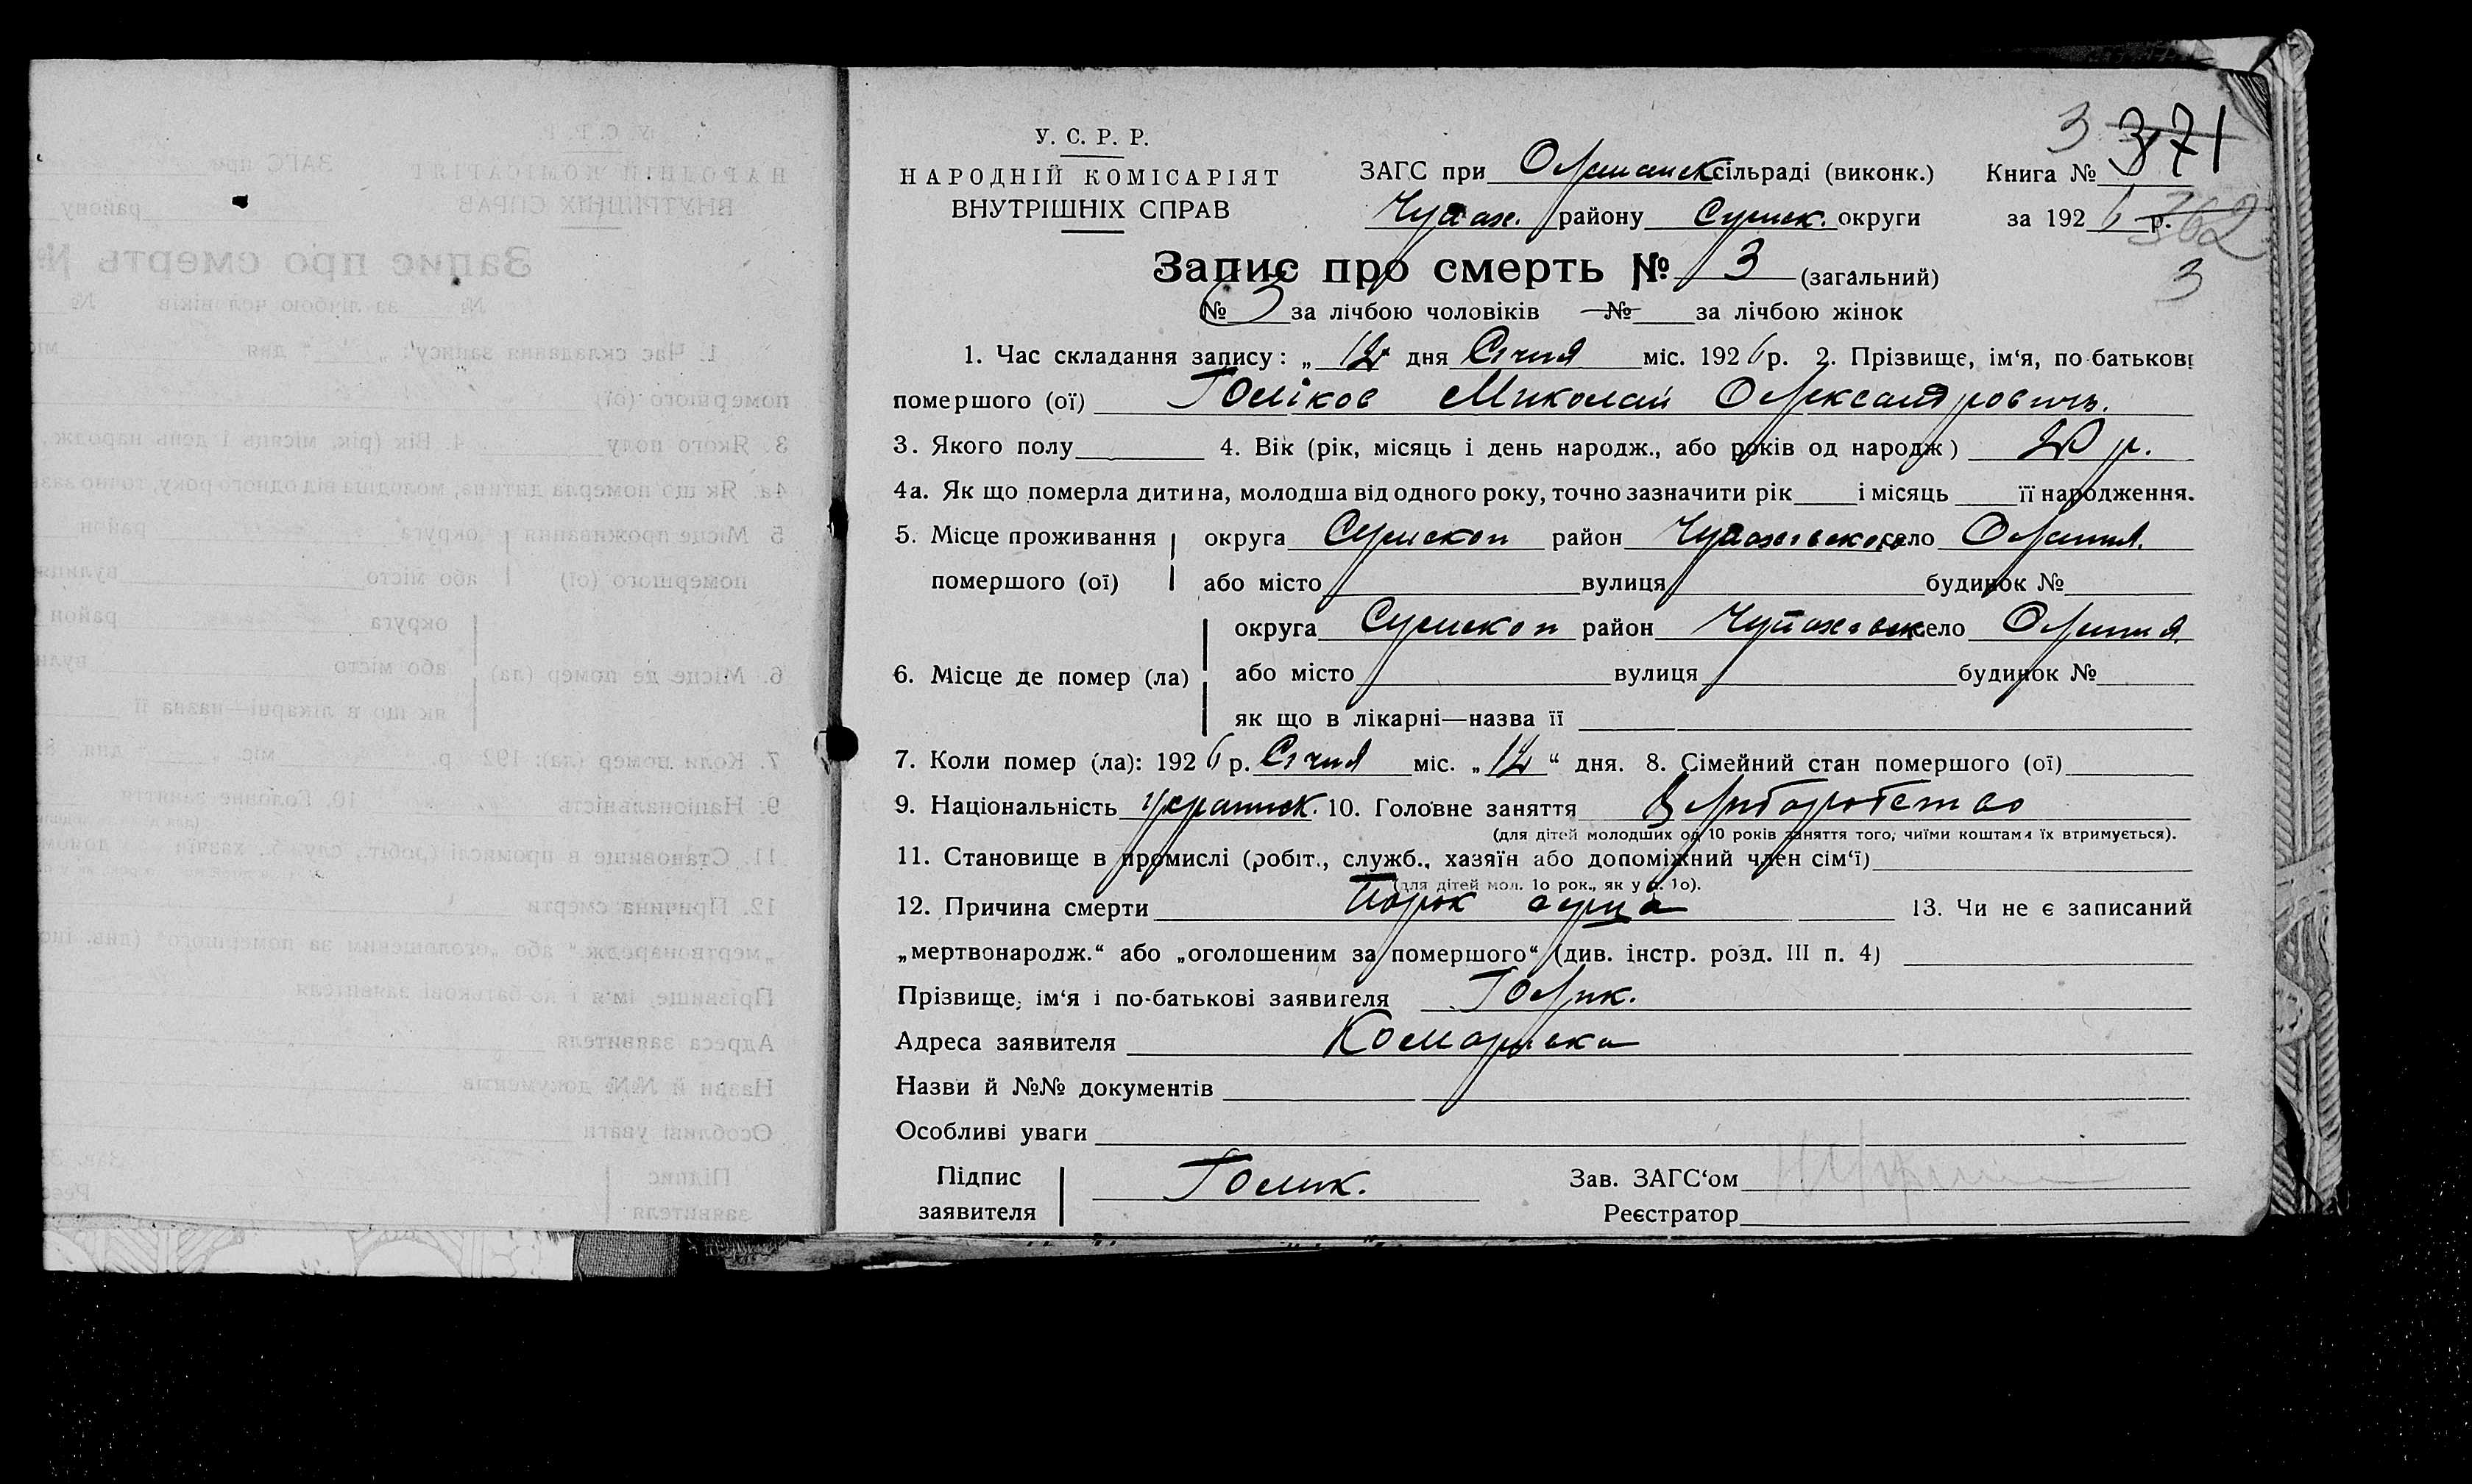 У. С. Р. Р.
НАРОДНІЙ КОМІСАРІЯТ
ВНУТРІШНІХ СПРАВ
3 371
ЗАГС при Олешанск сільраді (виконк.) Книга №
Чупах. району Сумск. округи за 1926 р.
362
3
Запис про смерть № 3 (загальний)
№ 3 за лічбою чоловіків № за лічбою жінок
1. Час складання запису: „ 12 дня Січня міс. 1926 р. 2. Прізвище, ім‘я, по-батькові
помершого (ої) Голіков Миколай Олександровичь.
3. Якого полу 4. Вік (рік, місяць і день народж., або років од народж) 20 р.
4а. Як що померла дитина, молодша від одного року, точно зазначити рік і місяць її народження.
5. Місце проживання округа Сумскоп район Чупаховского село
помершого (ої) або місто вулиця будинок №
округа Сумскоп район Чупаховск село
6. Місце де помер (ла) або місто вулиця будинок №
як що в лікарні—назва її
7. Коли помер (ла): 1926 р. Січня міс. „ 12 “ дня. 8. Сімейний стан помершого (ої)
9. Національність Украинск. 10. Головне заняття
(для дітей молодших од 10 років заняття того, чиїми коштами їх втримується).
11. Становище в промислі (робіт., служб., хазяїн або допоміжний член сім‘ї)
(для дітей мол. 10 рок., як у п. 10).
12. Причина смерти Порок серца 13. Чи не є записаний
„мертвонародж.“ або „оголошеним за помершого“ (див. інстр. розд. III п. 4)
Прізвище, ім‘я і по-батькові заявителя Голик.
Адреса заявителя Комарівка
Назви й №№ документів
Особливі уваги
Підпис
заявителя Голик.
Зав. ЗАГС‘ом
Реєстратор